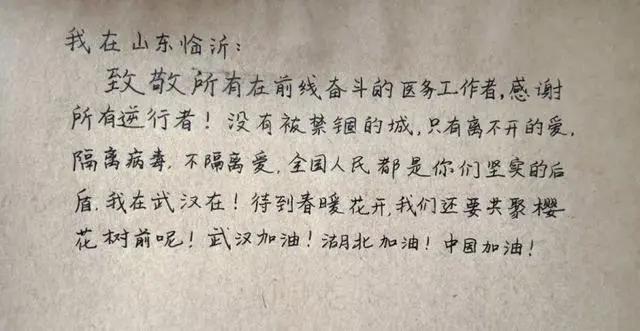 我在山东临沂：
致敬所有在前线奋斗的医务工作者,感谢
所有逆行者！没有被禁锢的城,只有离不开的爱,
隔离病毒.不隔离爱,全国人民都是你们坚实的后
盾.我在武汉在！待到春暖花开,我们还要共聚樱
花树前呢！武汉加油！湖北加油！中国加油！